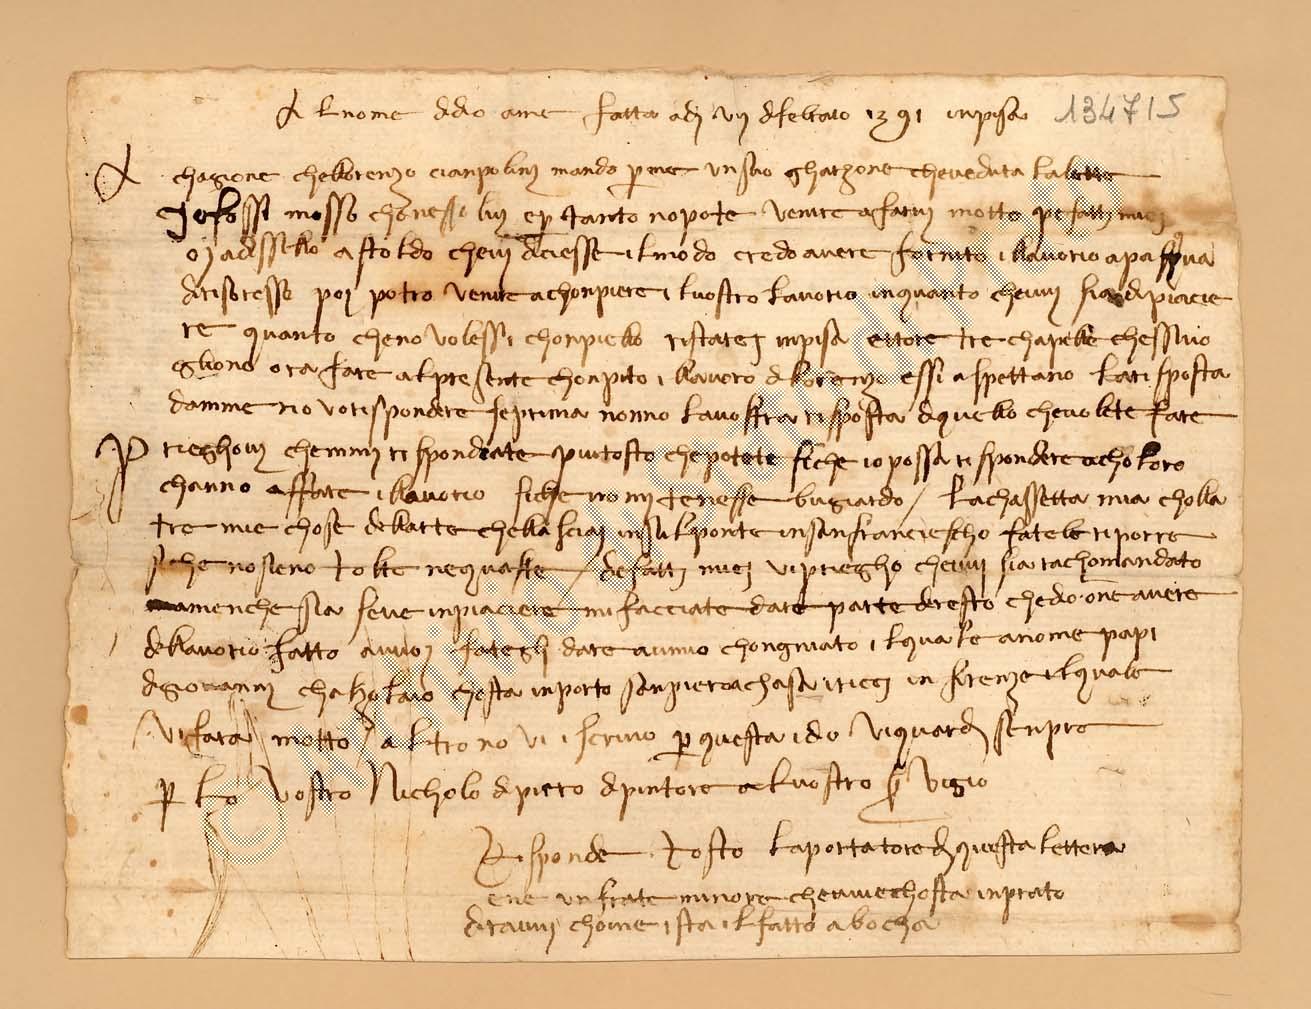 Al nome di dio ame fatta adj vij di febraio 1391 inpisa 134715
chagione che llorenzo cianpolinj mando per me un suo gharzone che veduta la lettera
io fossi mosso chonessi luj e per tanto no pote venire a farvj motto de fattj miej
oj adissi allo astoldo chevj diciesse il modo credo avere fornito i llavorio a pasqua
di risoresso poj potro venire a chonpiere i lvostro lavorio inquanto chevvj sia di piacie
re quanto che no volessi chonpiello ristarej inpisa e ttore tre chapelle chessi vo
gliono ora fare al presente chonpito i llavoro di lorenzo essi aspettano la risposta
damme no vo rispondere seprima nonno la vostra risposta di quello che volete fare
Prieghovj chemmj rispondiate piutosto che potete siche io possa rispondere acholoro
channo affare i llavorio siche no mj tenesse bugiardo / la chassetta mia cholla
tre mie chose dellarte chella sciaj insulponte insanfranciescho fatele riporre
siche no sieno tolte ne quaste / de fattj miej vi priegho chevvj sia rachomandato
amenche sia seve inpiaciere mi facciate dare parte di resto chedoone avere
dellavorio fatto avvoj fateglj dare a mio chongniato i lquale a nome papi
di govannj chalzolaio chesta inporto sanpiero achasa iricj in firenze ilquale
vi fara motto altro no vi iscrivo per questa idio vi guardj senpre
per lo vostro Nicholo di piero dipintore al vostro servigio
Risponde tosto la portatore di questa lettera
ene un frate minore chevviechosta inprato
diravvj chome ista il fatto abocha